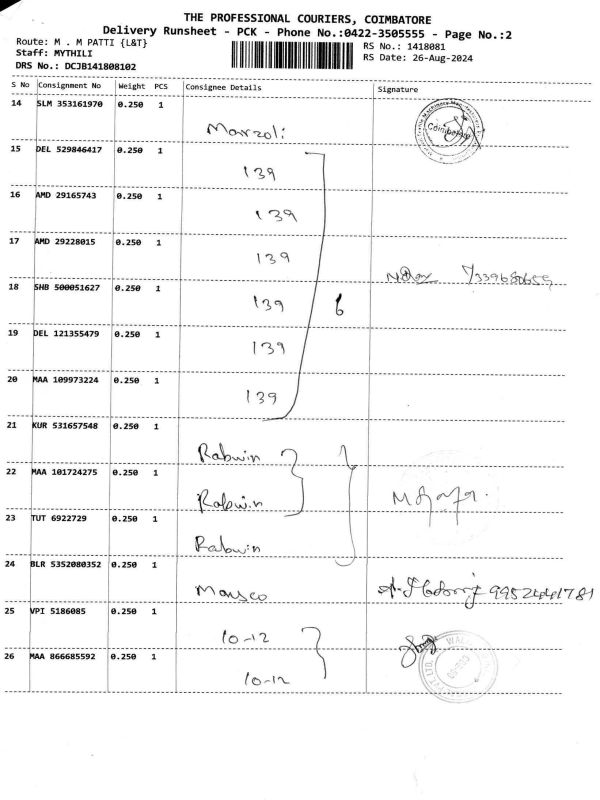 THE PROFESSIONAL COURIERS, COIMBATORE
Delivery Runsheet - PCK - Phone No.:0422-3505555 - Page No.:2
Route: M . M PATTI {L&T}
RS No.: 1418081
Staff: MYTHILI
RS Date: 26-Aug-2024
DRS No.: DCJB141808102
S No Consignment No Weight PCS Consignee Details Signature
14 SLM 353161970 0.250 1
Marzoli
Coimbatore
15 DEL 529846417 0.250 1
139
16 AMD 29165743 0.250 1
139
17 AMD 29228015 0.250 1
139
18 SHB 500051627 0.250 1
139 6
19 DEL 121355479 0.250 1
139
20 MAA 109973224 0.250 1
139
21 KUR 531657548 0.250 1
Rabwin
22 MAA 101724275 0.250 1
Rabwin
23 TUT 6922729 0.250 1
Rabwin
24 BLR 5352080352 0.250 1
Marsco 9952441781
25 VPI 5186085 0.250 1
10-12
26 MAA 866685592 0.250 1
10-12